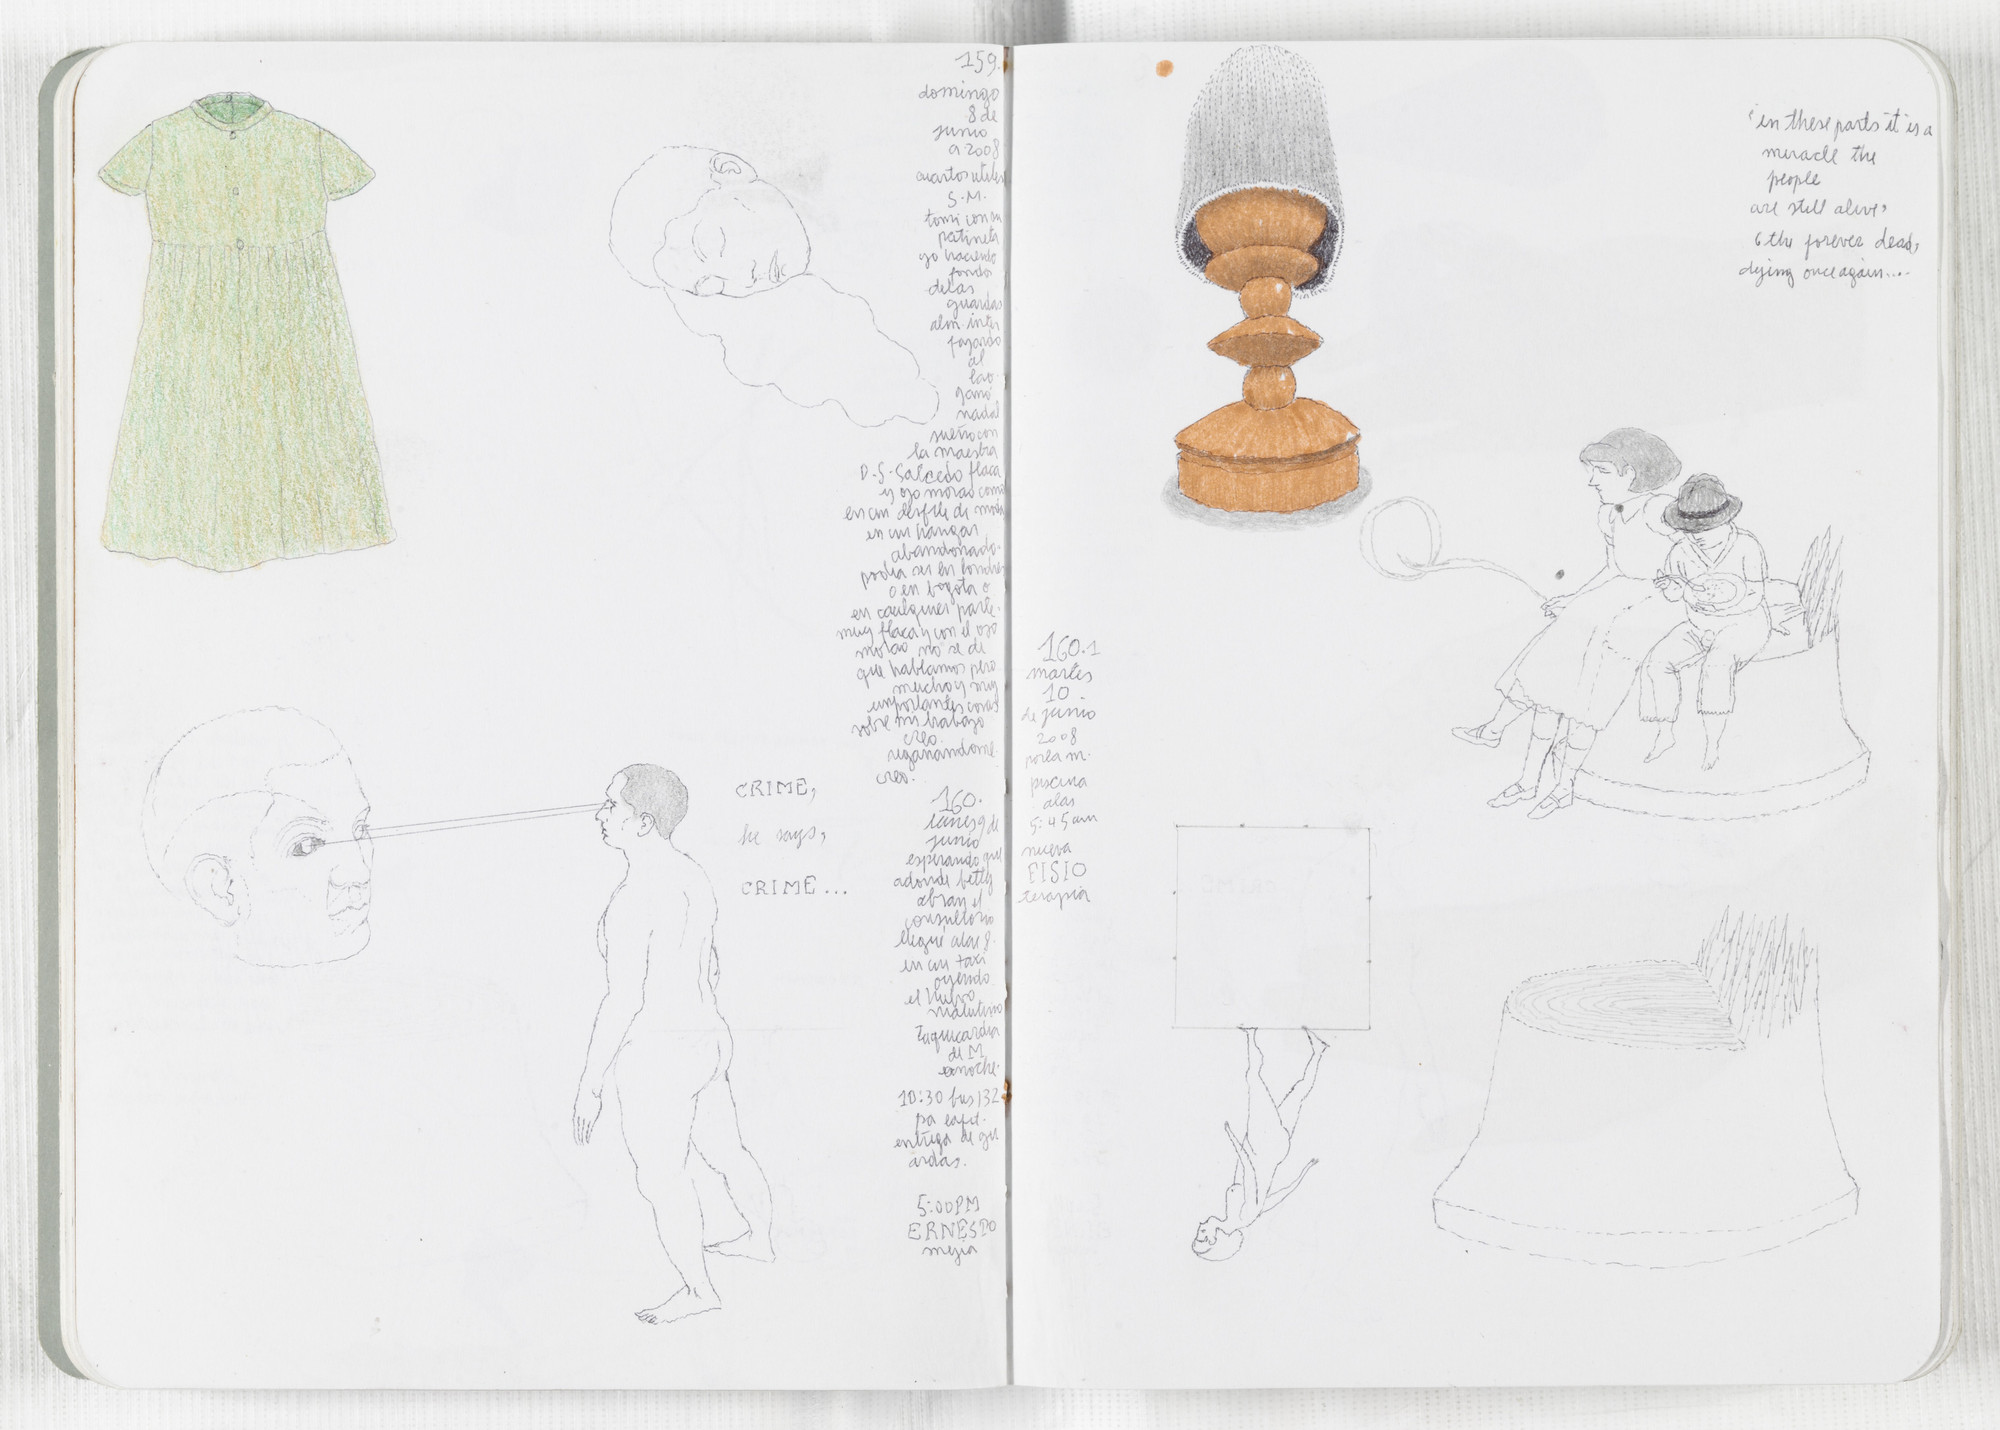 159.
domingo
8 de
junio
a 2008
cuartos utiles
S.M.
tomi con su
patineta
yo haciendo
fondos
de las
guardas
alm. inter
fajardo
al
lao
ganó
nadal
sueño con
la maestra
D.S. Salcedo flaca
y ojo morao como
en un desfile de moda
en un hangar
abandonado.
podia ser en londres
o en bogota o
en cualquier parte.
muy flaca y con el ojo
morao no se de
que hablamos pero
mucho y muy
importantes cosas
sobre mi trabajo
creo.
regañandome.
creo.
160.
lunes 9 de
junio
esperando que
adonde betty
abran el
consultorio
llegué a las 8.
en un taxi
oyendo
el
matutino
taquicardia
de M
anoche.
10:30 bus 132
pa eafit.
entrega de gu
ardas.
5:00 PM
ERNESTO
mejia
CRIME,
he says,
CRIME...
160.1
martes
10.
de junio
2008
por la m.
piscina
a las
5:45 am
nueva
FISIO
terapia
'in these parts it is a
miracle the
people
are still alive,
the forever dead,
dying once again....